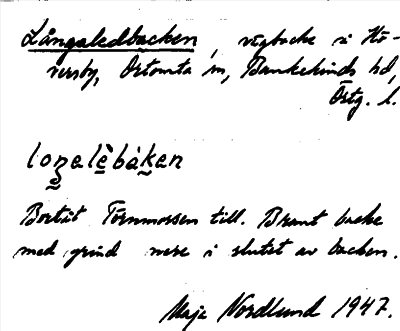 Långaledbacken, vägbacke i Hö-
versby, Örtomta sn, Bankekinds hd,
Östg. l.
loŋalèbákan
Bortåt Törnmossen till. Brant backe
med grind nere i slutet av backen.
Maja Nordlund 1947.